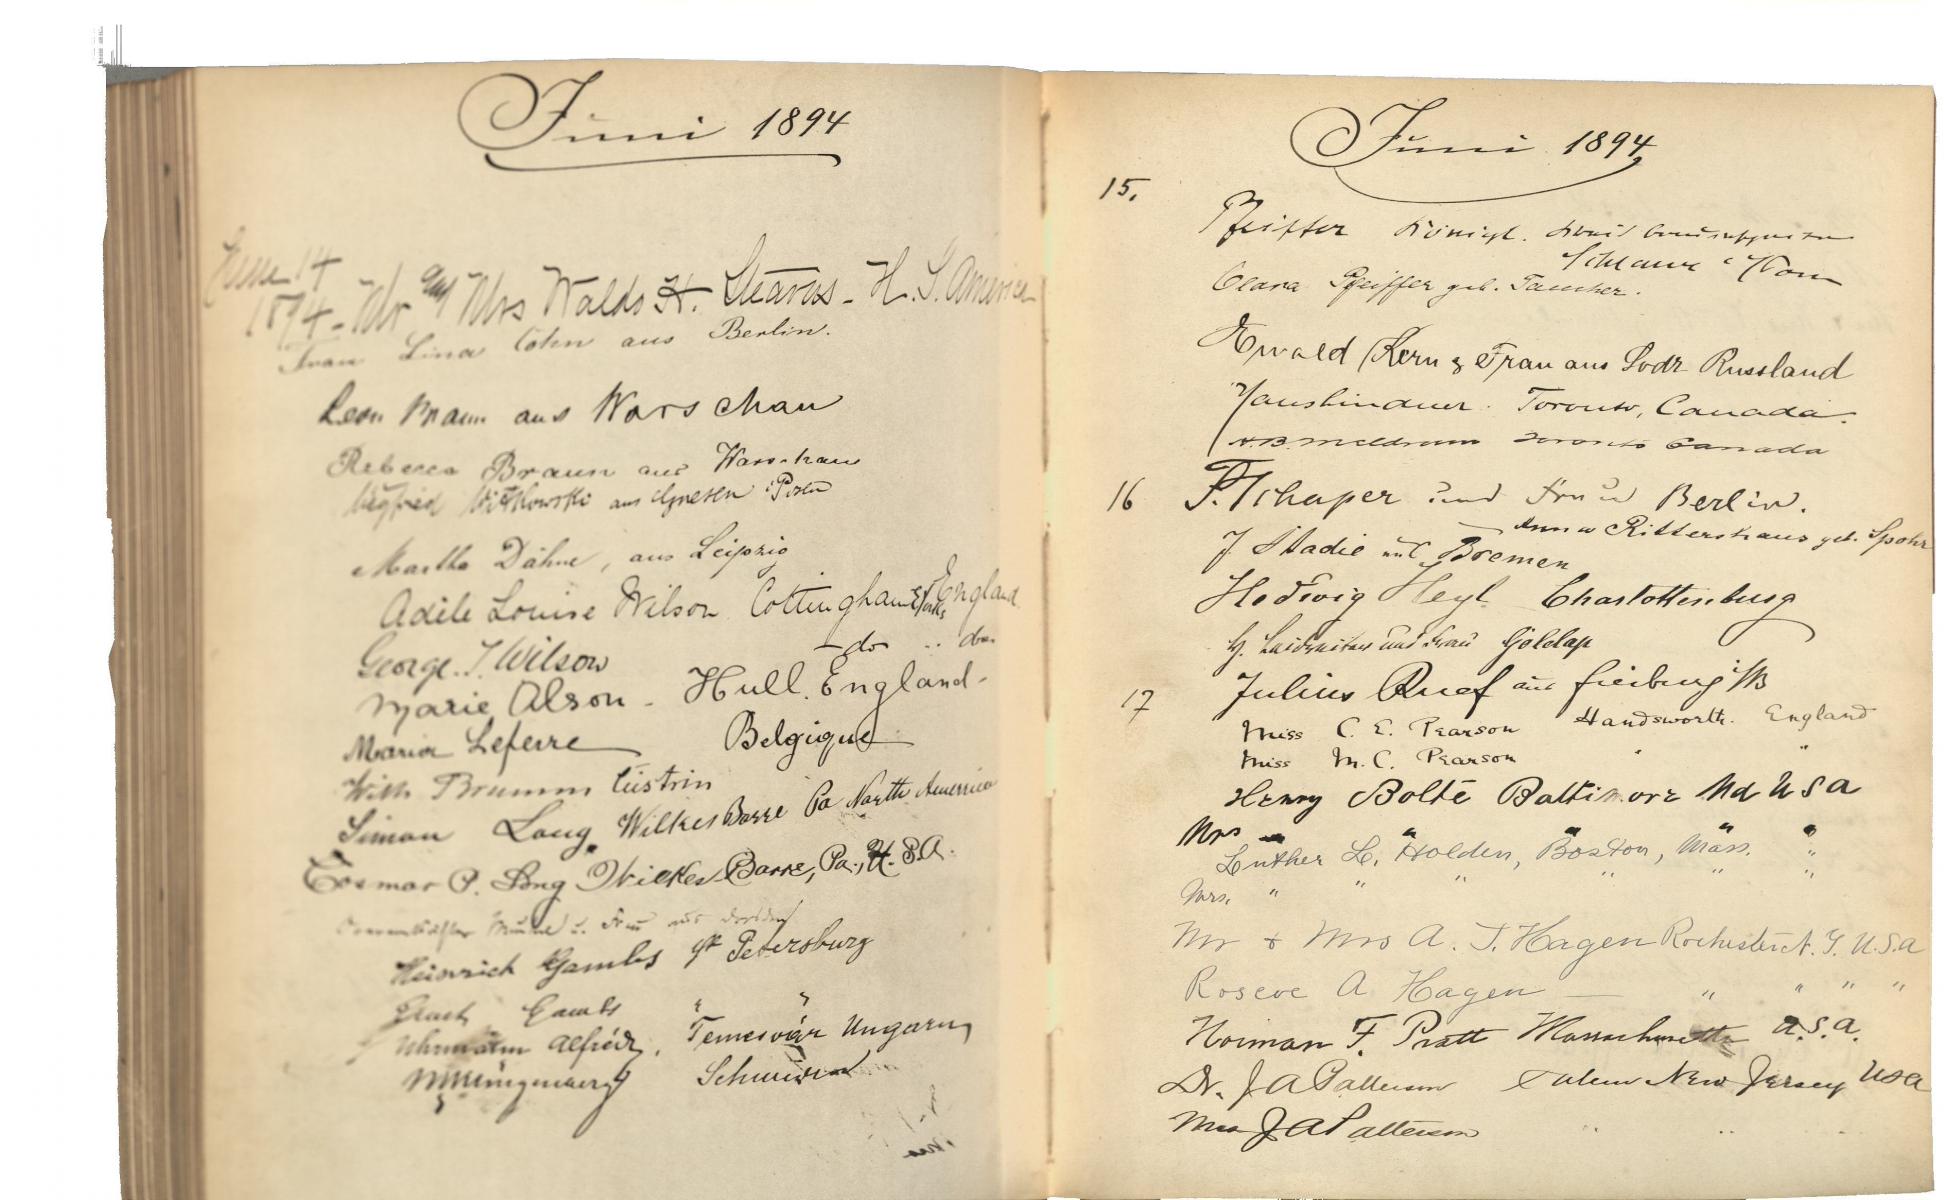 Juni 1894
June 14
1894 - Mr and Mrs Waldo H. Stearns - U.S. America
Frau Lina Cohn aus Berlin.
Leon Braun aus Warschau
Rebecca Braun aus Warschau
Siegfried Witkowski aus Gnesen Posen
Martha Dähne, aus Leipzig
Adéle Louise Wilson Cottingham E/Yorks England
George. T. Wilson - do .. do
Marie Olson - Hull. England -
Maria Lefevre Belgique
With Brumm Cüstrin
Simon Long Wilkes Barre Pa North America
Cosmar P. Long Wilkes-Barre, Pa., U.S.A.
u. Frau aus Dresden
Heinrich Gambs St Petersburg
Gambs " "
Alfréd, Temesvár Ungarn
Juni 1894
15.
Pfeiffer Königl.
Clara Pfeiffer geb. Tascher.
Ewald Kern & Frau aus Lodz Russland
Toronto, Canada.
Meldrum Toronto Canada
16 F. Schaper und Frau Berlin.
Anna Rittershaus geb. Spohr
J Stadie aus Bremen
Hedwig Heyl Charlottenburg
und Frau Goldap
17 Julius Ruef aus Freiburg i/B
Miss C. E. Pearson Handsworth. England
Miss M. C. Pearson " "
Henry Bolte Baltimore Md USA
Mrs " " " " "
Luther L. Holden, Boston, Mass. "
Mrs. " " " " " "
Mr & Mrs A. J. Hagen Rochester N. Y. U.S.A
Roscoe A Hagen — " " " "
Norman F. Pratt Massachusetts U.S.A.
Dr. J A Patterson Salem New Jersey USA
Mrs J A Patterson " "